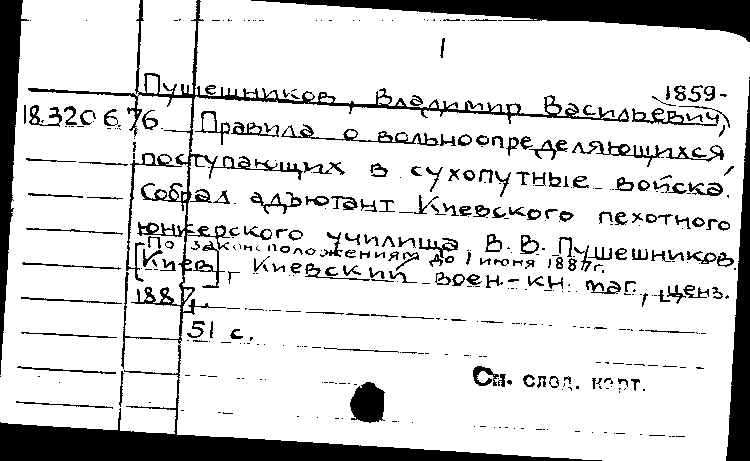 1
1859-
Пушешников, Владимир Васильевич,
18.320.6.76 Правила о вольноопределяющихся,
поступающих в сухопутные войска.
Собрал адъютант Киевского пехотного
юнкерского училища В. В. Пушешников.
По закон положениям до 1 июня 1887г.
[Киев], Киевский воен.-кн. маг., ценз.
1887.
51 с.
См. след. карт.